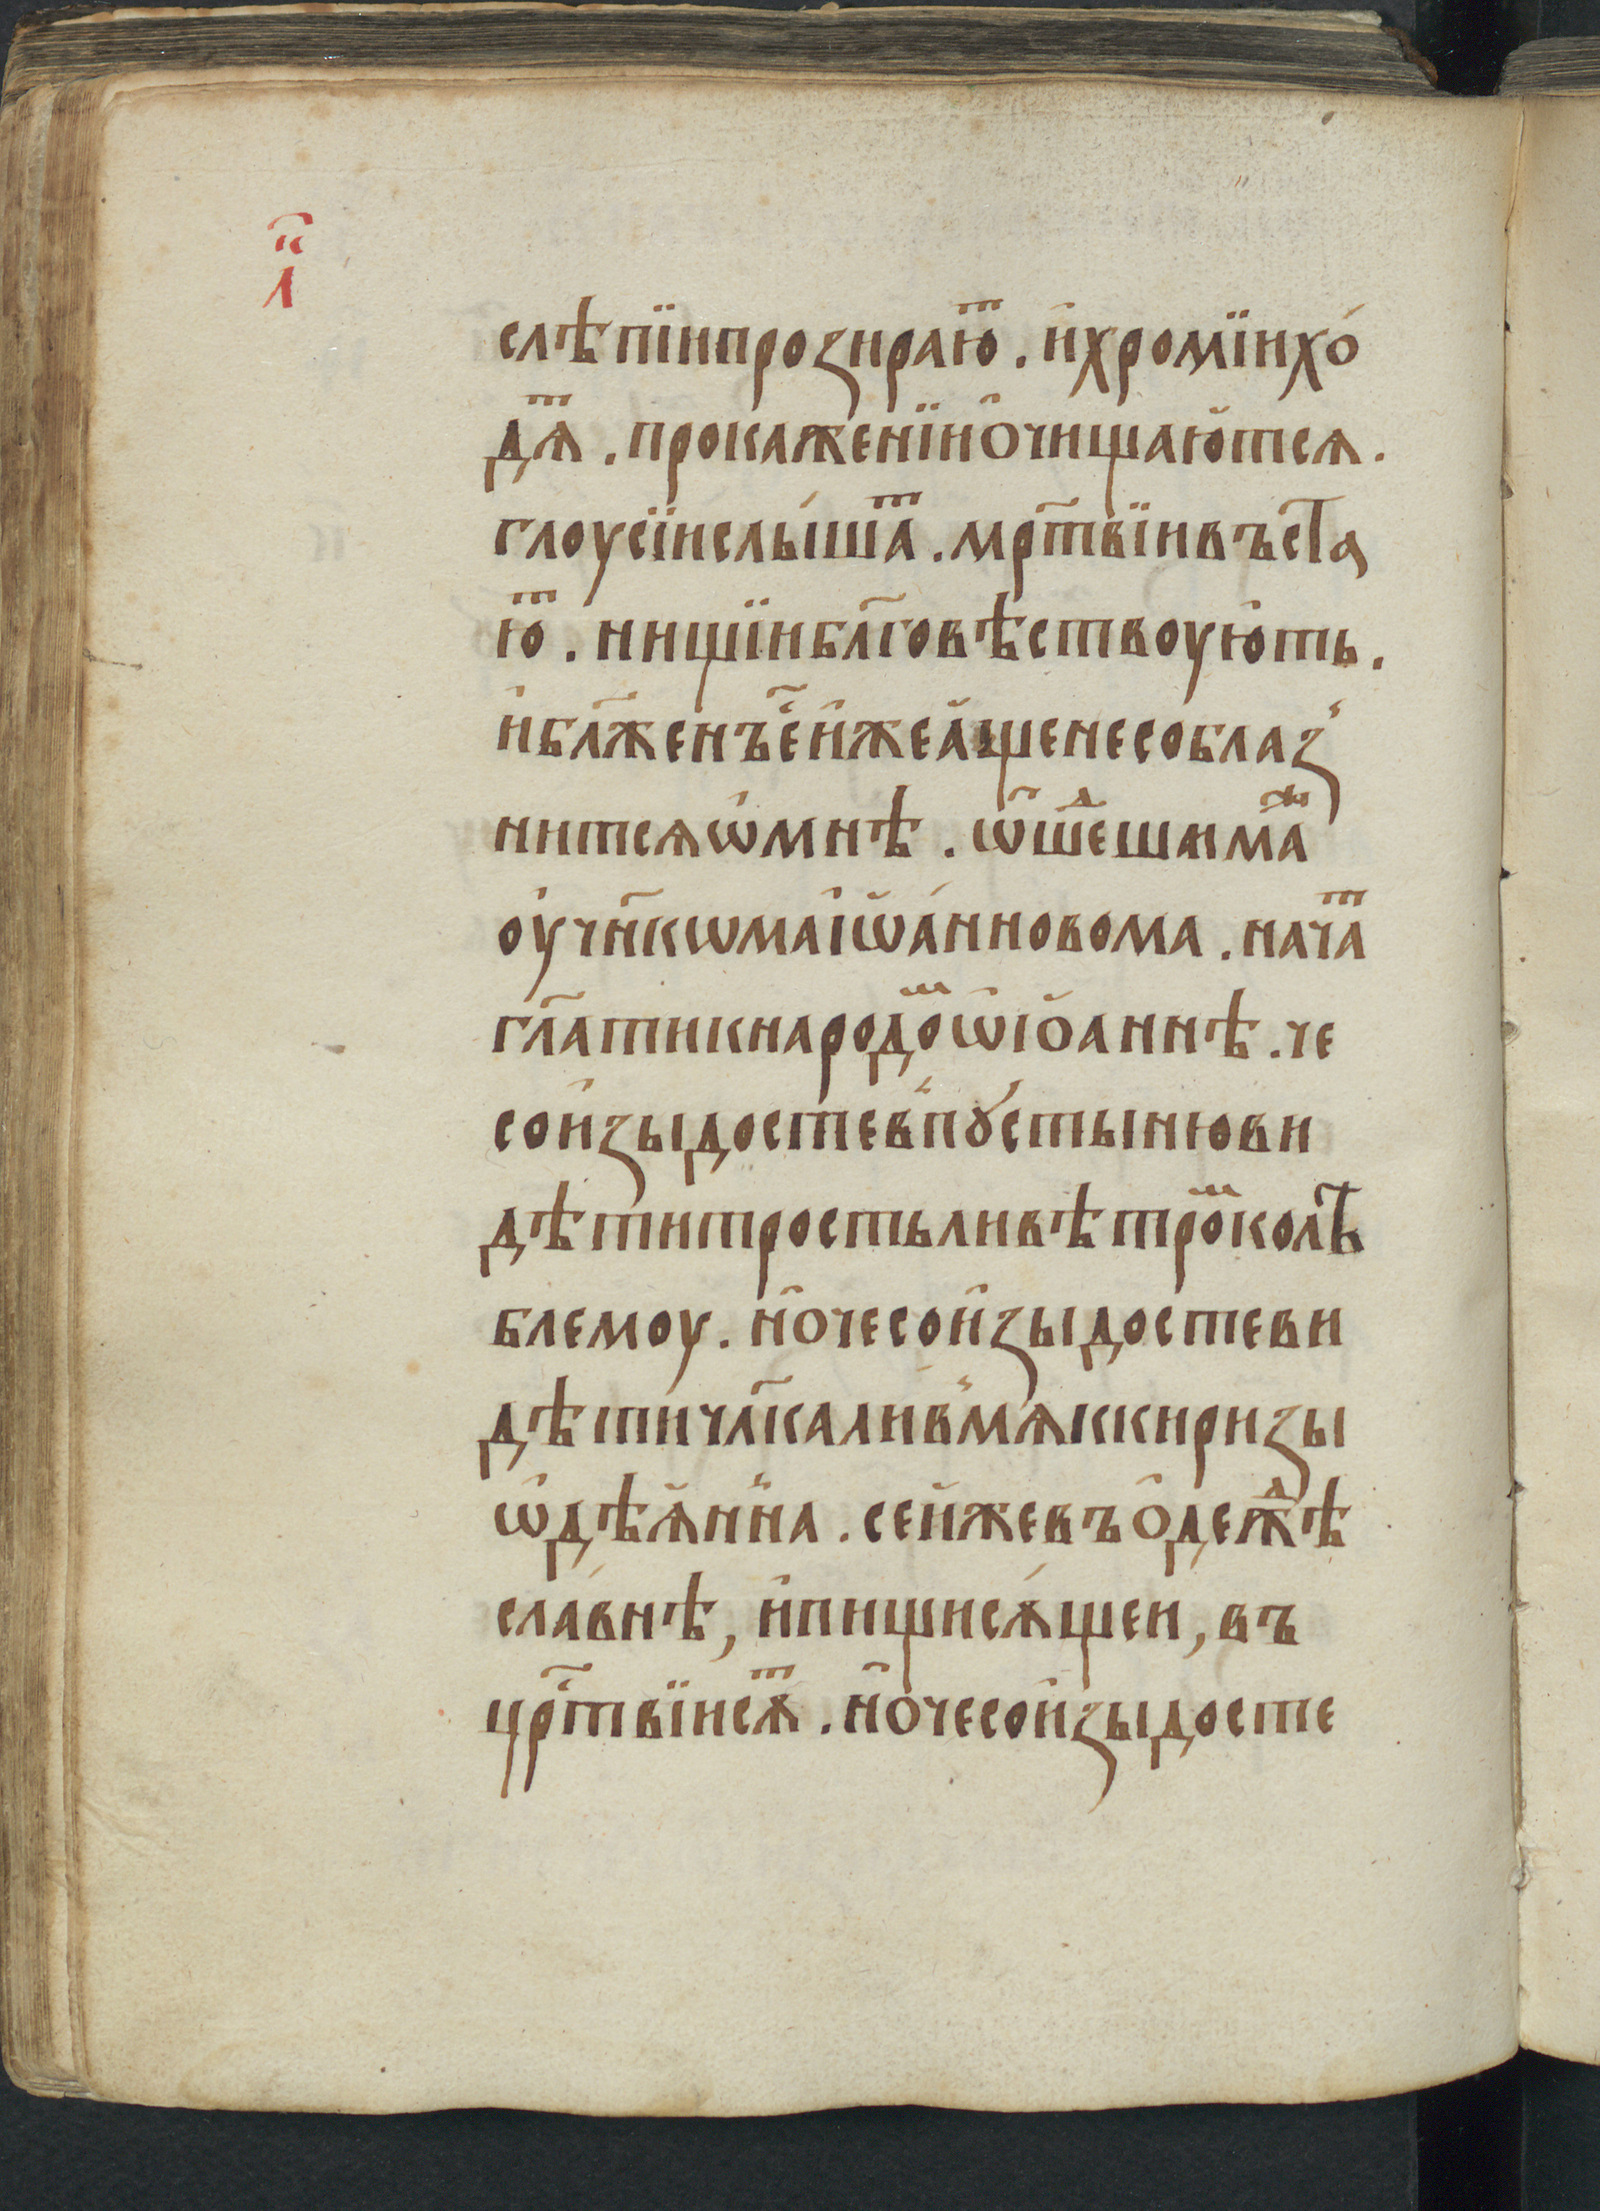 л҃
слѣпїипрозираю҆ⷮ. и҆хромїихо́
дѧⷮ. прокаженїиѻ҆чищаю҆тсѧ.
глоусїислы́шаⷮ. мр҃твїивъста
ю҆ⷮ. нищїибл҃говѣствоую҆ть.
и҆бл҃женъе҆ⷭ҇и҆жеа҆щенесоблаз
нитсѧѡ҆мнѣ. ѿше́ⷣшаимаⷤ
оу҆чн҃кѡмаі҆ѡа́нновома. начаⷮ
гл҃атикнародоⷨѡ҆і҆ѻаннѣ. че
сои҆зыдостевпꙋ́стынюви
дѣтитростьливѣтроⷨколѣ
блемоу. но҆чесои҆зыдостеви
дѣтичл҃каливмѧккиризы
ѡ҆дѣѧ҆нна. сеи҆жевъѻ҆деⷤдѣ
сла́внѣ, и҆пищисѧ́щеи, въ
цр҃твїисѧⷮ. но҆чесои҆зыдосте